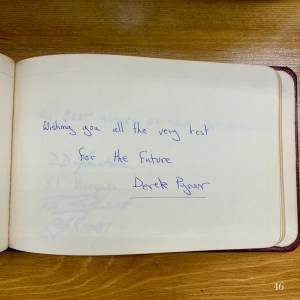 Wishing you all the very best
for the Future
Derek Pyner
46